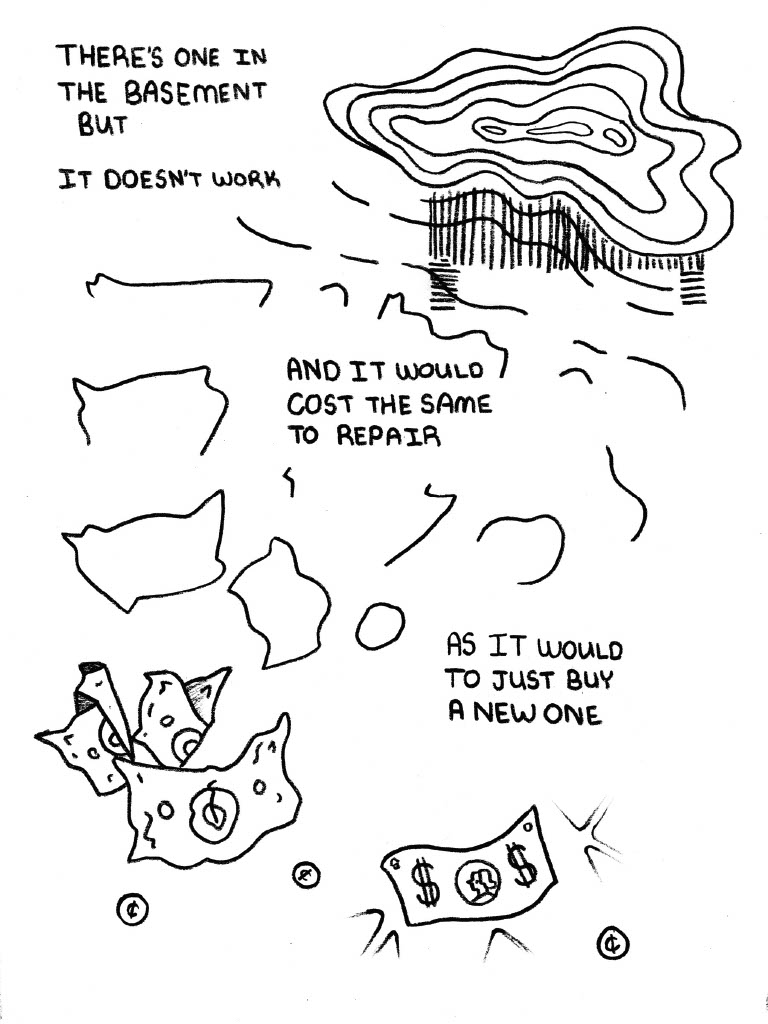 THERE'S ONE IN
THE BASEMENT
BUT
IT DOESN'T WORK
AND IT WOULD
COST THE SAME
TO REPAIR
AS IT WOULD
TO JUST BUY
A NEW ONE
¢
$ $
¢
¢